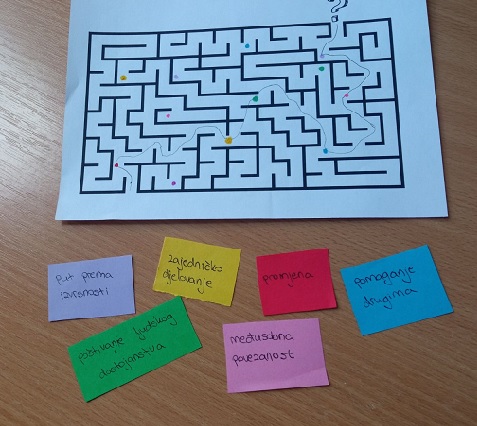 ?
put prema
izvrsnosti
zajedničko
djelovanje
promjena
pomaganje
drugima
poštivanje ljudskog
dostojanstva
međusobna
povezanost